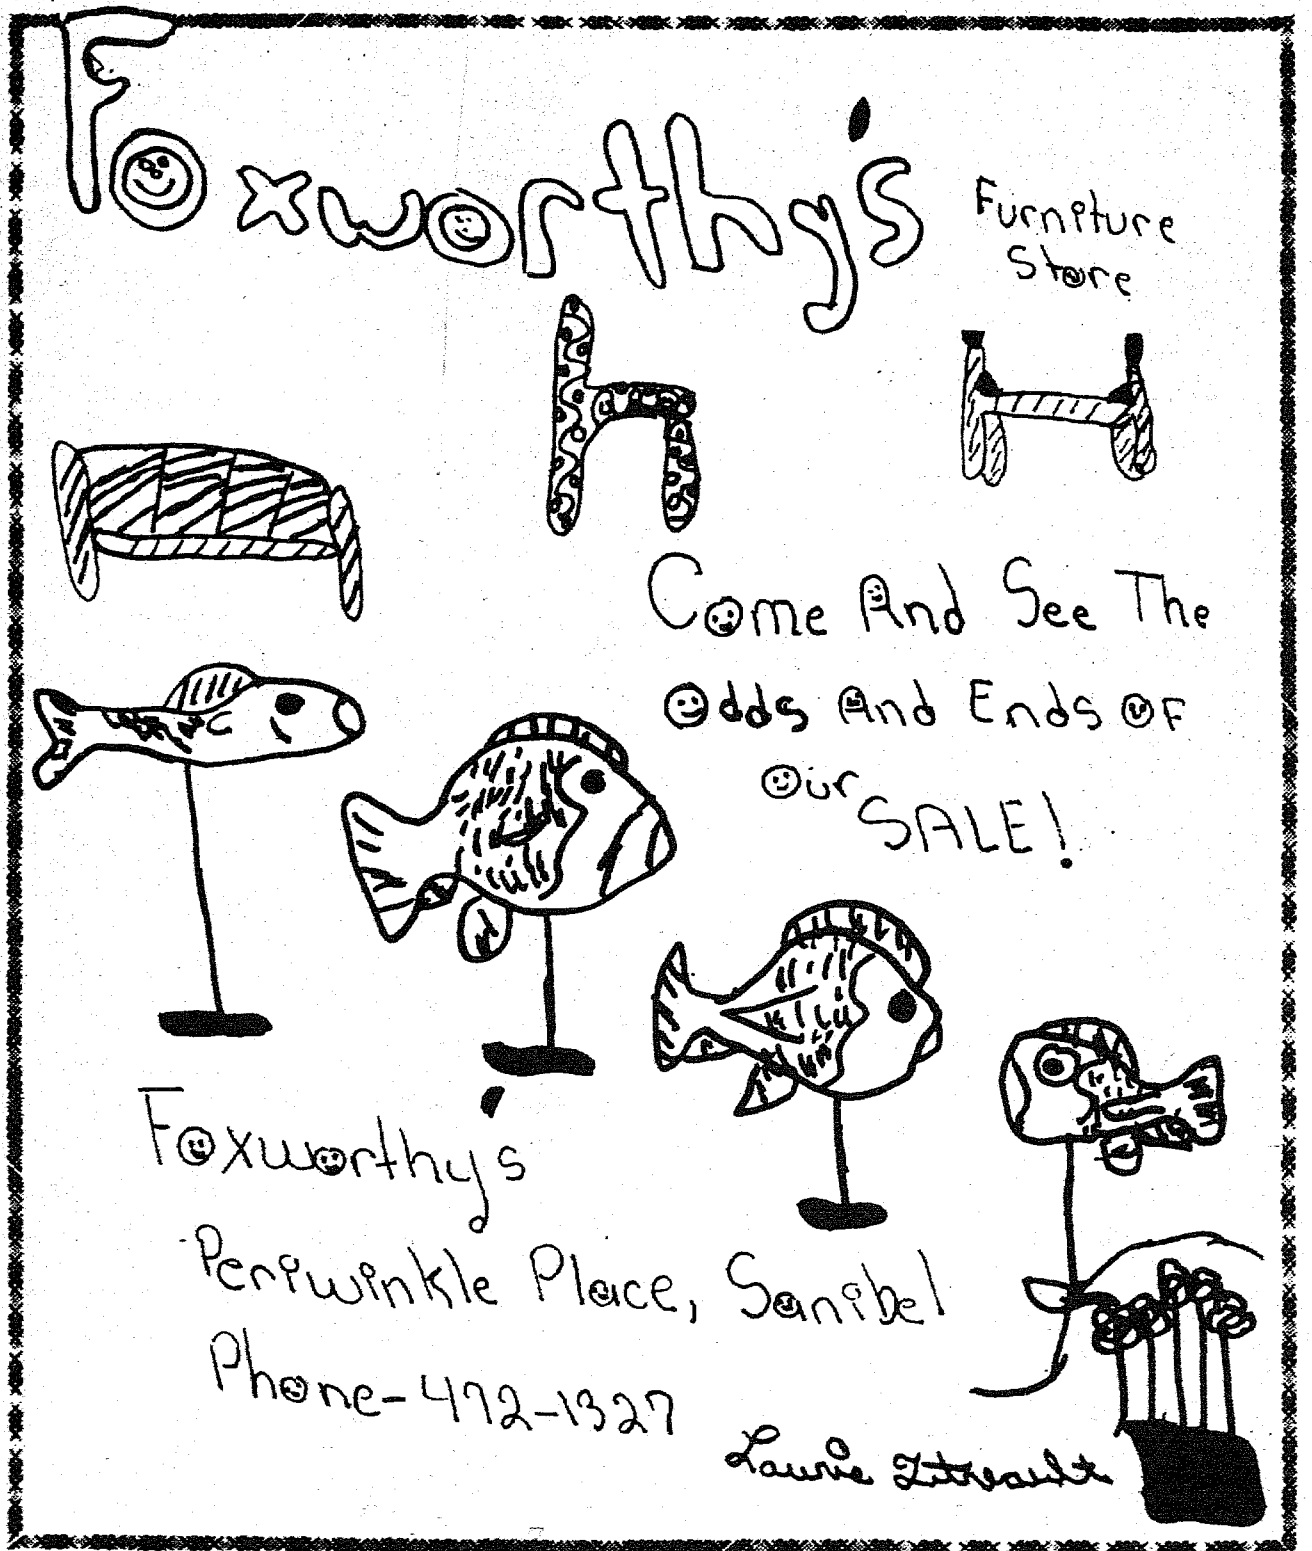 Foxworthy's
Furniture
Store
Come And See The
Odds And Ends Of
Our SALE!
Foxworthy's
Periwinkle Place, Sanibel
Phone-472-1327
Laurie